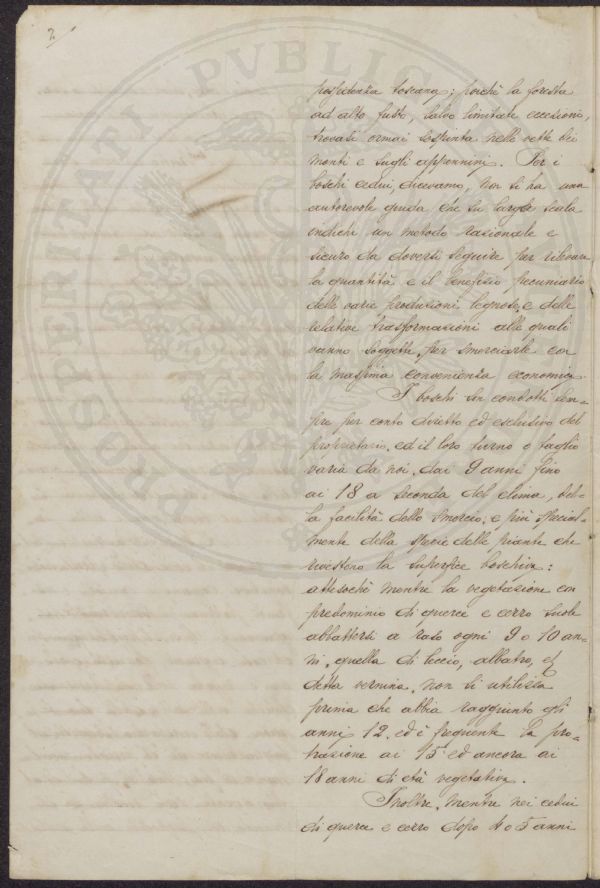 2.
PROSPERITATI PVBLICAE
possidenza toscana; poichè la foresta
ad alto fusto, salvo limitate eccezioni,
trovasi ormai sospinta nelle vette dei
monti e sugli appennini. Per i
boschi cedui, dicevamo, non si ha una
autorevole guida che su larga scala
indichi un metodo razionale e
sicuro da doversi seguire per rilevare
la quantità e il beneficio pecuniario
delle varie produzioni legnose, e delle
relative trasformazioni alle quali
vanno soggette, per smerciarle con
la massima convenienza economica.
I boschi son condotti sem=
pre per conto diretto ed esclusivo del
proprietario, ed il loro turno o taglio
varia da noi, dai 9 anni fino
ai 18 a seconda del clima, del=
la facilità dello smercio, e più special=
mente della specie delle piante che
rivestono la superfice boschiva:
attesochè mentre la vegetazione con
predominio di querce e cerro suole
abbattersi a raso ogni 9 o 10 an=
ni, quella di leccio, albatro, e
detta vernina, non si utilizza
prima che abbia raggiunto gli
anni 12. ed è frequente la pro=
trazione ai 15 ed ancora ai
18 anni di età vegetativa.
Inoltre, mentre nei cedui
di querce e cerro dopo 4 o 5 anni